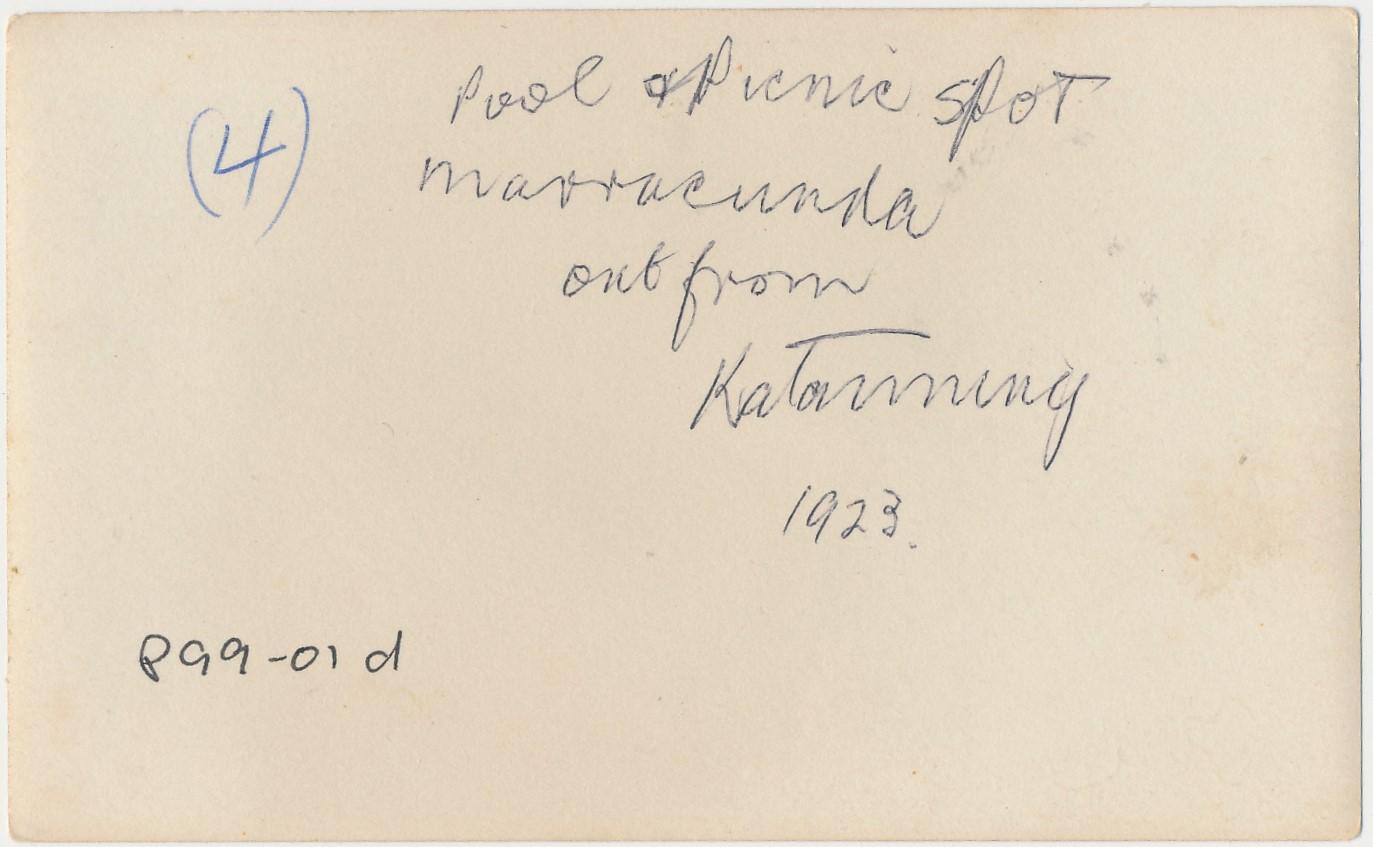 (4)
Pool & Picnic spot
Marracunda
out from
Katanning
1923.
P99-01d